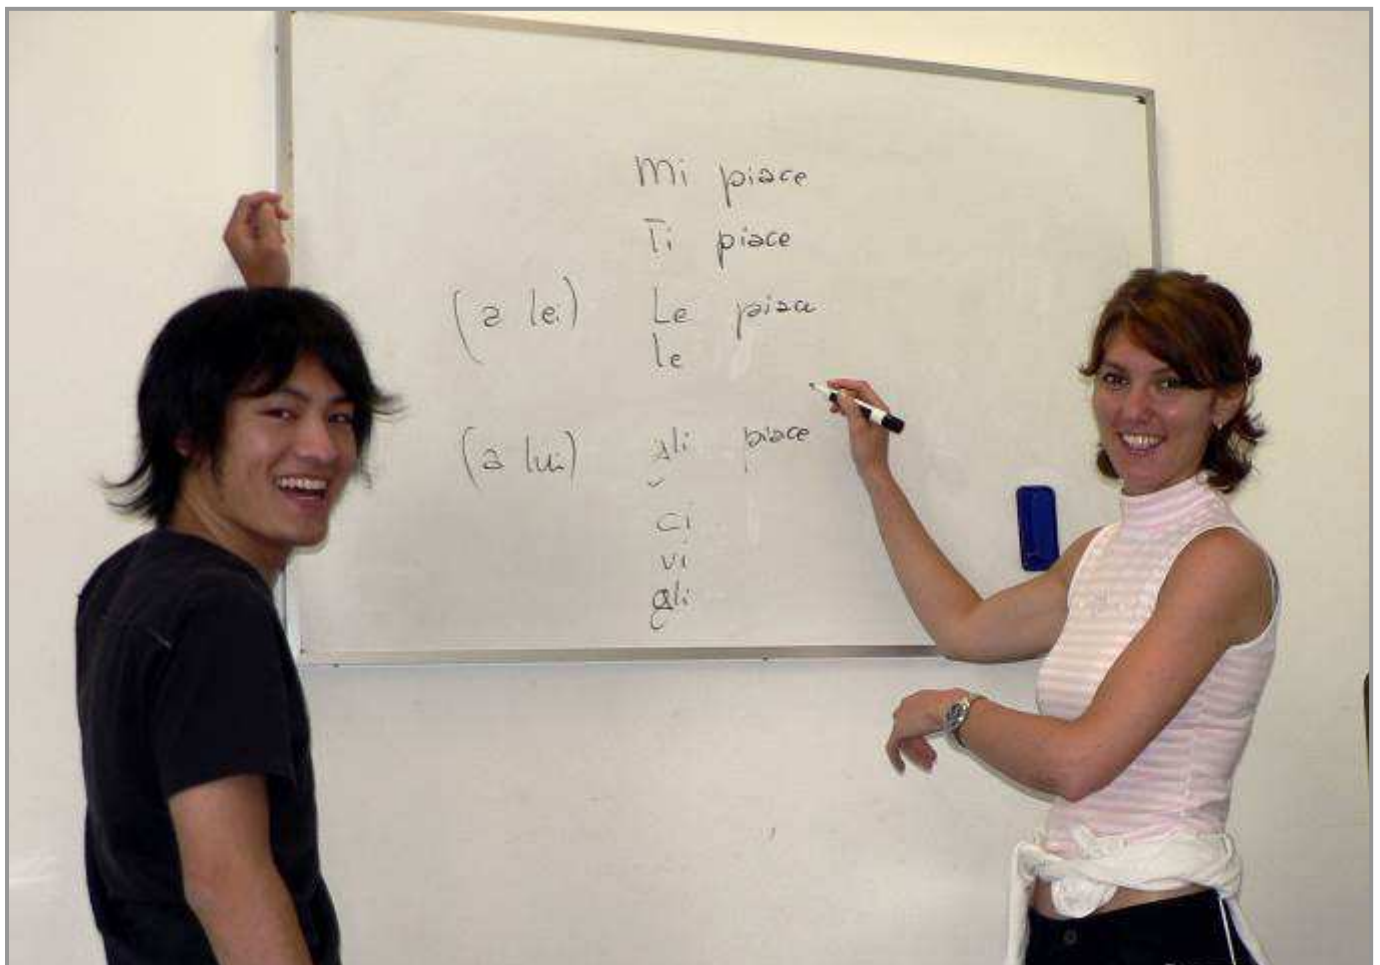 Mi piace
Ti piace
(a lei) Le piace
le
(a lui) gli piace
ci
vi
gli